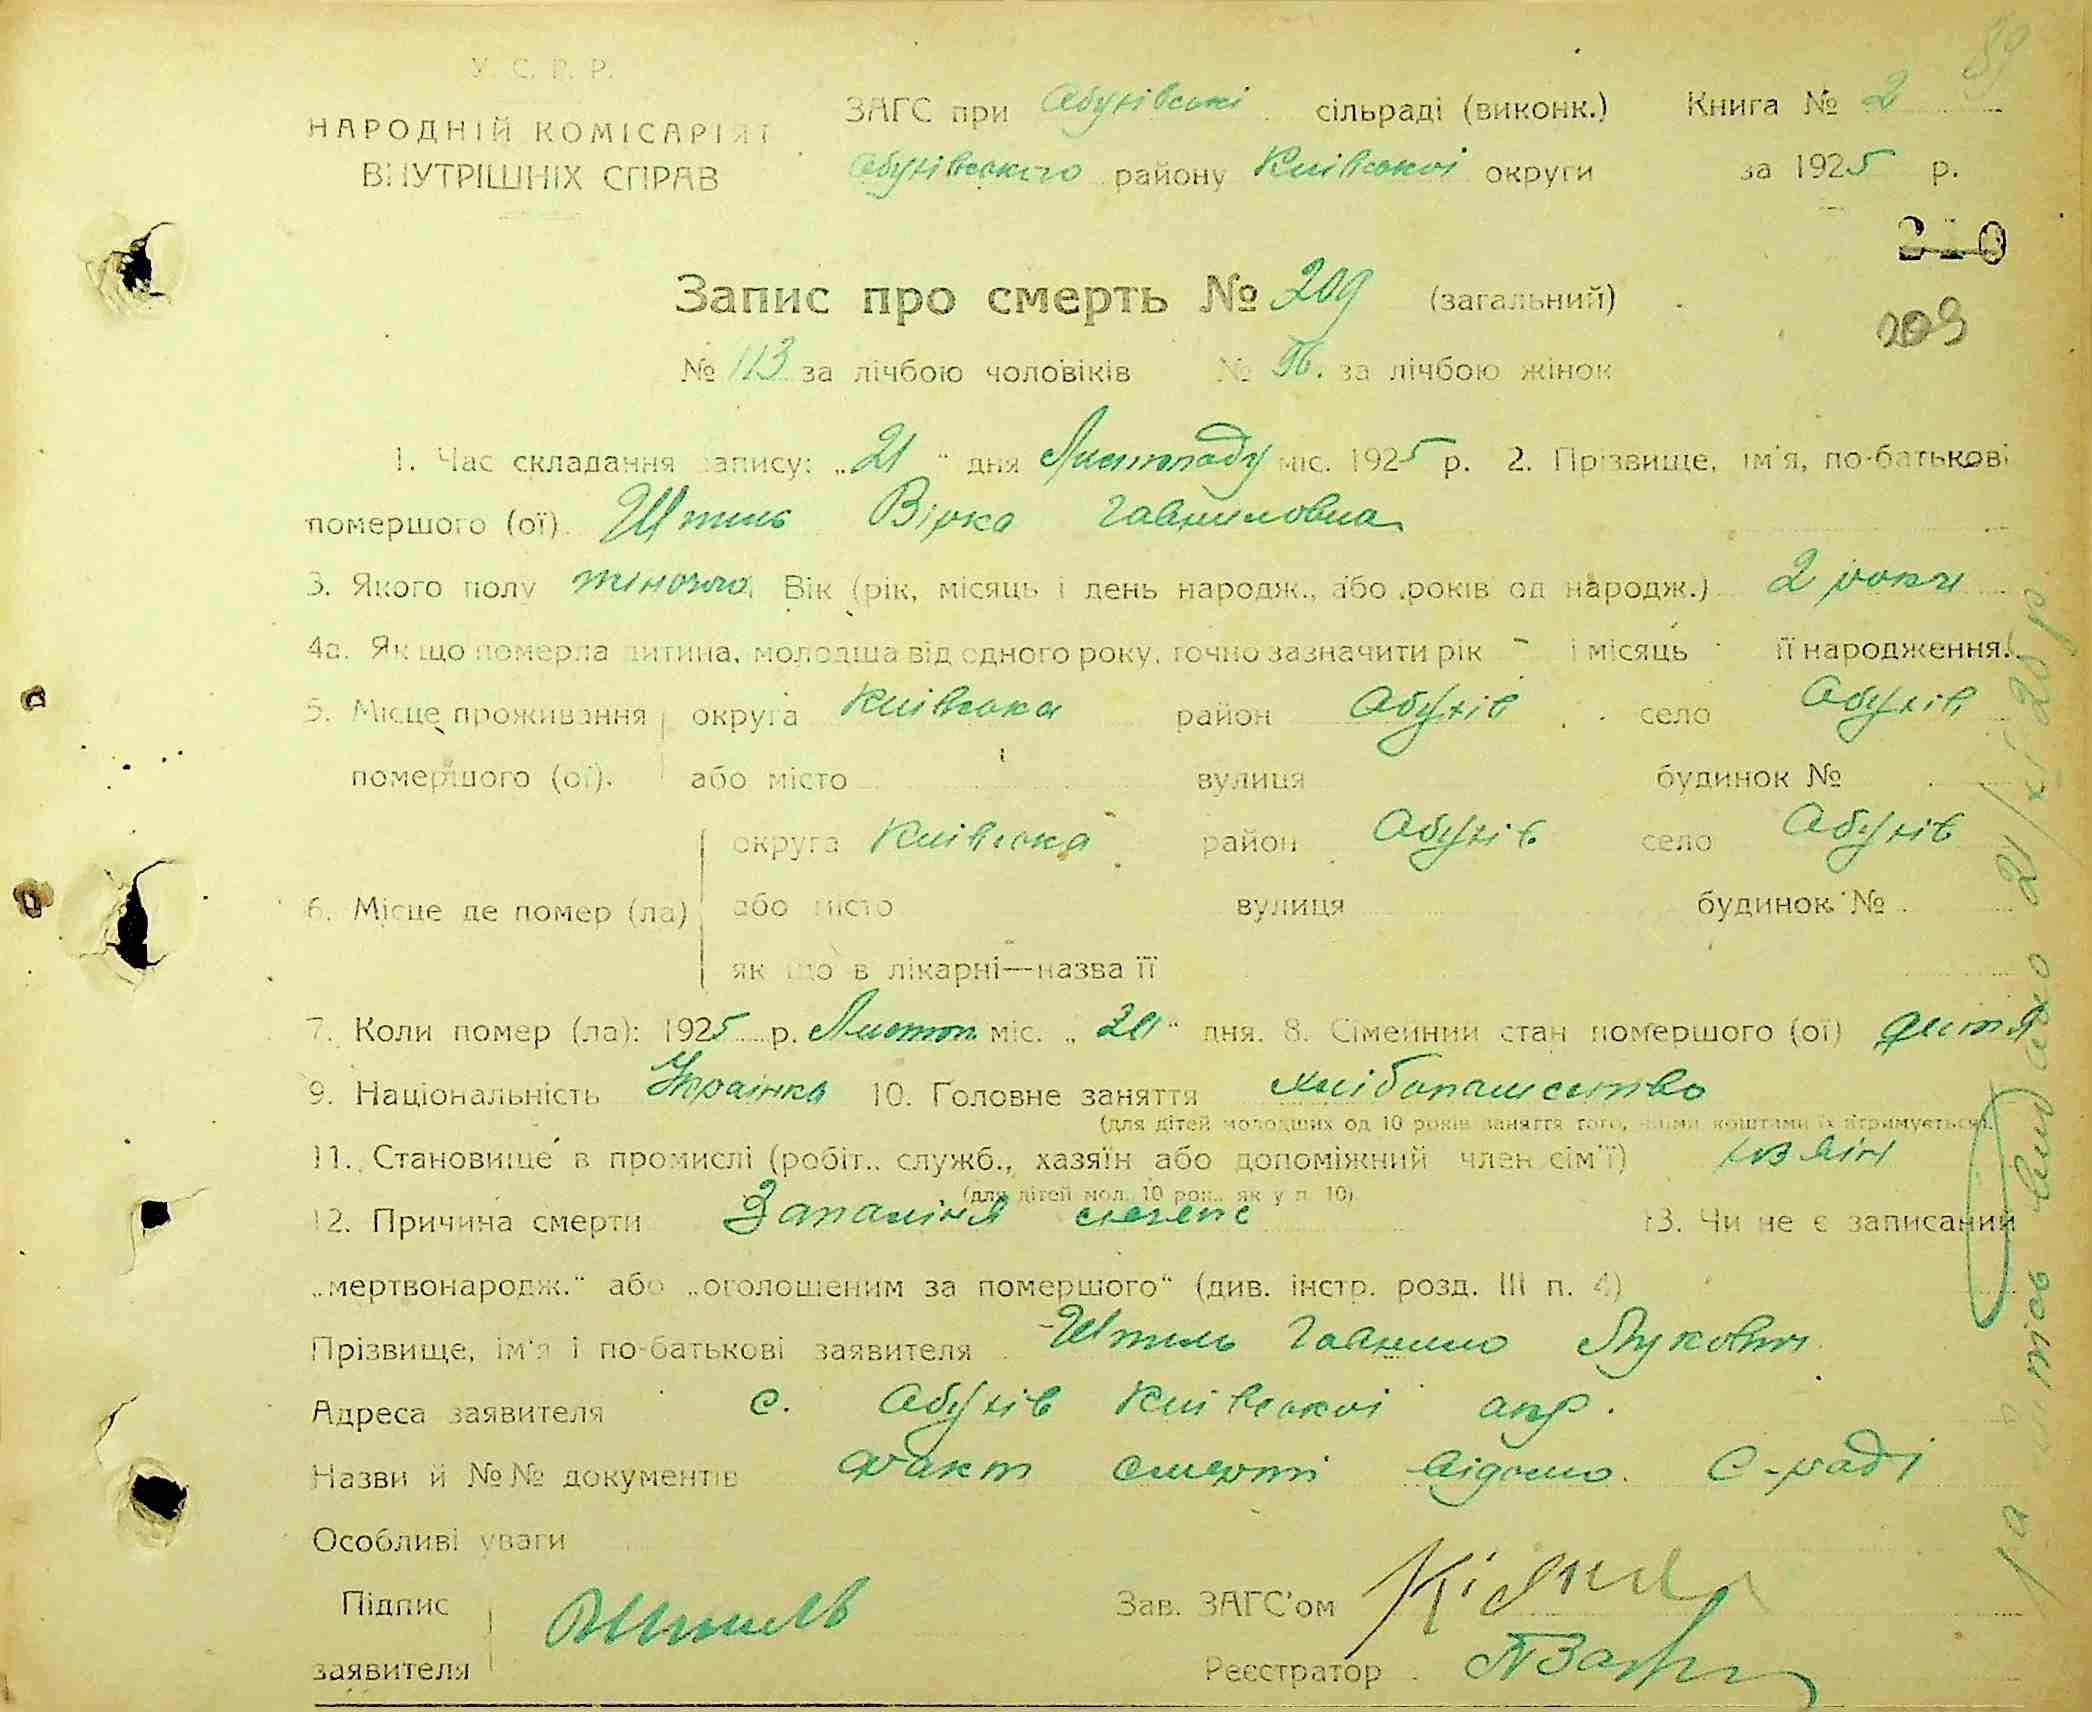 89
У. С. Р. Р.
НАРОДНІЙ КОМІСАРІЯТ
ВНУТРІШНІХ СПРАВ
ЗАГС при Абухівські сільраді (виконк.) Книга № 2
Абухівського району Київської округи за 1925 р.
210
Запис про смерть № 209 (загальний)
209
№ 113 за лічбою чоловіків № 96. за лічбою жінок
1. Час складання запису: „21" дня Листопаду міс. 1925 р. 2. Прізвище, ім'я, по-батькові
помершого (ої) Штиль Вірка Гавриловна
3. Якого полу жіночого Вік (рік, місяць і день народж., або років од народж.) 2 роки
4а. Якщо померла дитина, молодша від одного року, точно зазначити рік - і місяць її народження.
5. Місце проживання округа Київська район Абухів село Абухів
помершого (ої). або місто вулиця будинок №
округа Київська район Абухів село Абухів
6. Місце де помер (ла) або місто вулиця будинок №
як що в лікарні—назва її
7. Коли помер (ла): 1925 р. Листоп. міс. „20" дня. 8. Сімейний стан помершого (ої) дитя
9. Національність Українка 10. Головне заняття хлібопашество
(для дітей молодших од 10 років заняття того, чиїми коштами їх втримується).
11. Становище в промислі (робіт., служб., хазяїн або допоміжний член сім'ї) хазяїн
(для дітей мол. 10 рок., як у п. 10)
12. Причина смерти Запаління легенє 13. Чи не є записаний
„мертвонародж." або „оголошеним за помершого" (див. інстр. розд. III п. 4)
Прізвище, ім'я і по-батькові заявителя Штиль Гаврило Лукович
Адреса заявителя с. Абухів Київської окр.
Назви й №№ документів факт смерті відомо С-раді
Особливі уваги
Підпис Штиль Зав. ЗАГС'ом
заявителя Реєстратор
видано 21/XI 25 р.